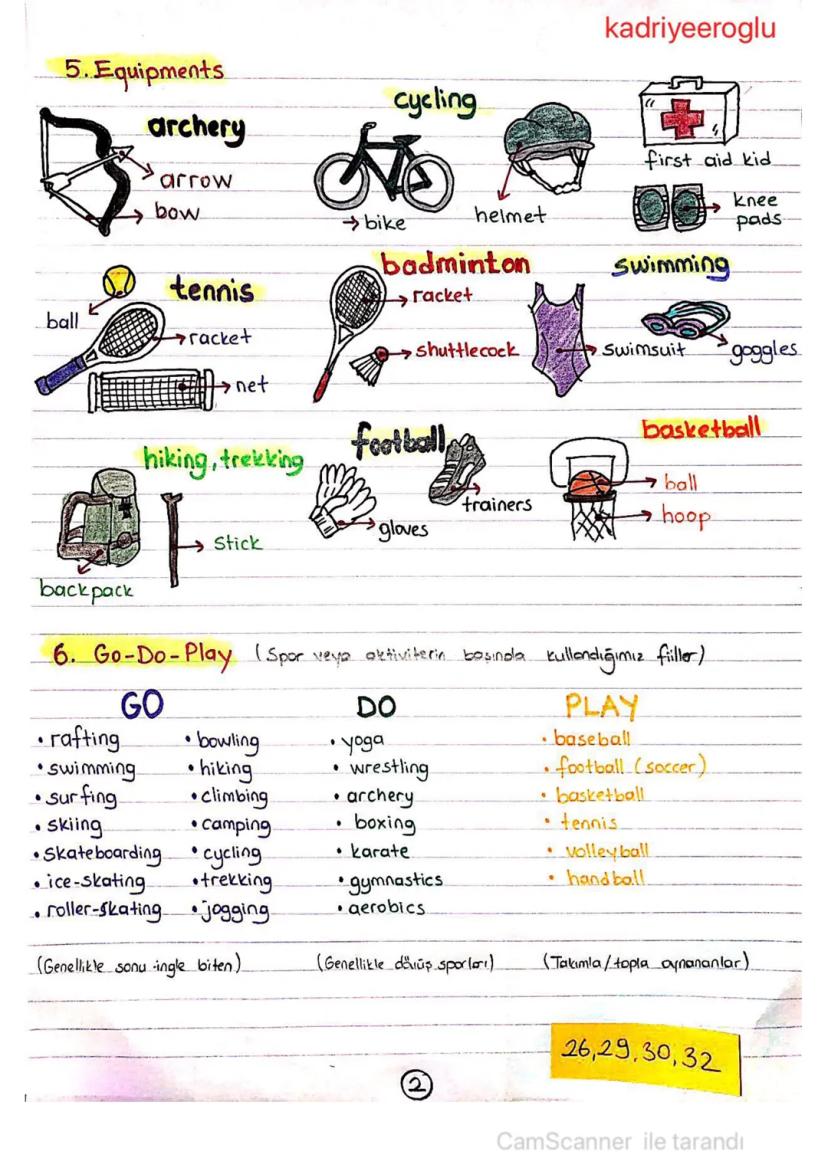 kadriyeeroglu
5. Equipments
archery
arrow
bow
cycling
bike
helmet
first aid kid
knee
pads
tennis
ball
racket
net
badminton
racket
shuttlecock
swimming
swimsuit
goggles
hiking, trekking
stick
backpack
football
trainers
gloves
basketball
ball
hoop
6. Go-Do-Play (Spor veya aktiviterin başında kullandığımız fiiller)
GO
• rafting
• swimming
• surfing
• skiing
• skateboarding
• ice-skating
• roller-skating
• bowling
• hiking
• climbing
• camping
• cycling
• trekking
• jogging
(Genellikle sonu ingle biten)
DO
• yoga
• wrestling
• archery
• boxing
• karate
• gymnastics
• aerobics
(Genellikle dövüş sporları)
PLAY
• baseball
• football (soccer)
• basketball
• tennis
• volleyball
• handball
(Takımla/topla oynananlar)
26,29,30,32
2
CamScanner ile tarandı